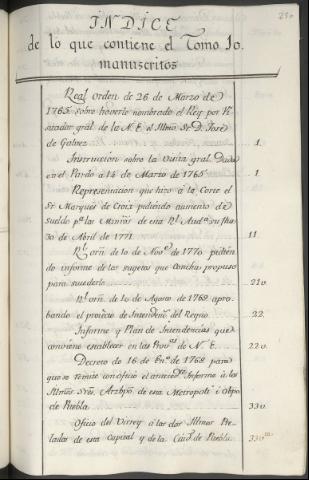 INDICE
de lo que contiene el Tomo 1o.
manuscritos
Real orden de 26 de Marzo de
1765 sobre haverle nombrado el Rey por Vi
sitador gral. de la N. E. el Illmo Sr. D. Josè
de Galvez 1.
Instruccion sobre la Visita gral. Dada
en el Pardo à 14 de Marzo de 1765 1
Representacion que hizo à la Corte el
Sr. Marques de Croix pidiendo aumento de
sueldo pa. los Minros. de esta Rl. Auda. su fha.
30 de Abril de 1771. 11
Rl. orn. de 10 de Nove. de 1770 pidien
do informe de los sugetos que
para sucederle 21v.
Rl. orn. de 10 de Agosto de 1769 apro
bando el proiecto de Intendens. del Reyno. 22.
Informe y Plan de Intendencias que
conviene establecer en las Provas. de N. E. 22v.
Decreto de 16 de Eno. de 1768 para
que se remite con oficio el antecedte. Informe à los
Illmos Sres. Arzbpo. de esta Metropoli è Obpo
de Puebla. 33v.
Oficio del Virrey à los dos Illmos Pre
lados de esta Capital y de la Ciud. de Puebla. 33v